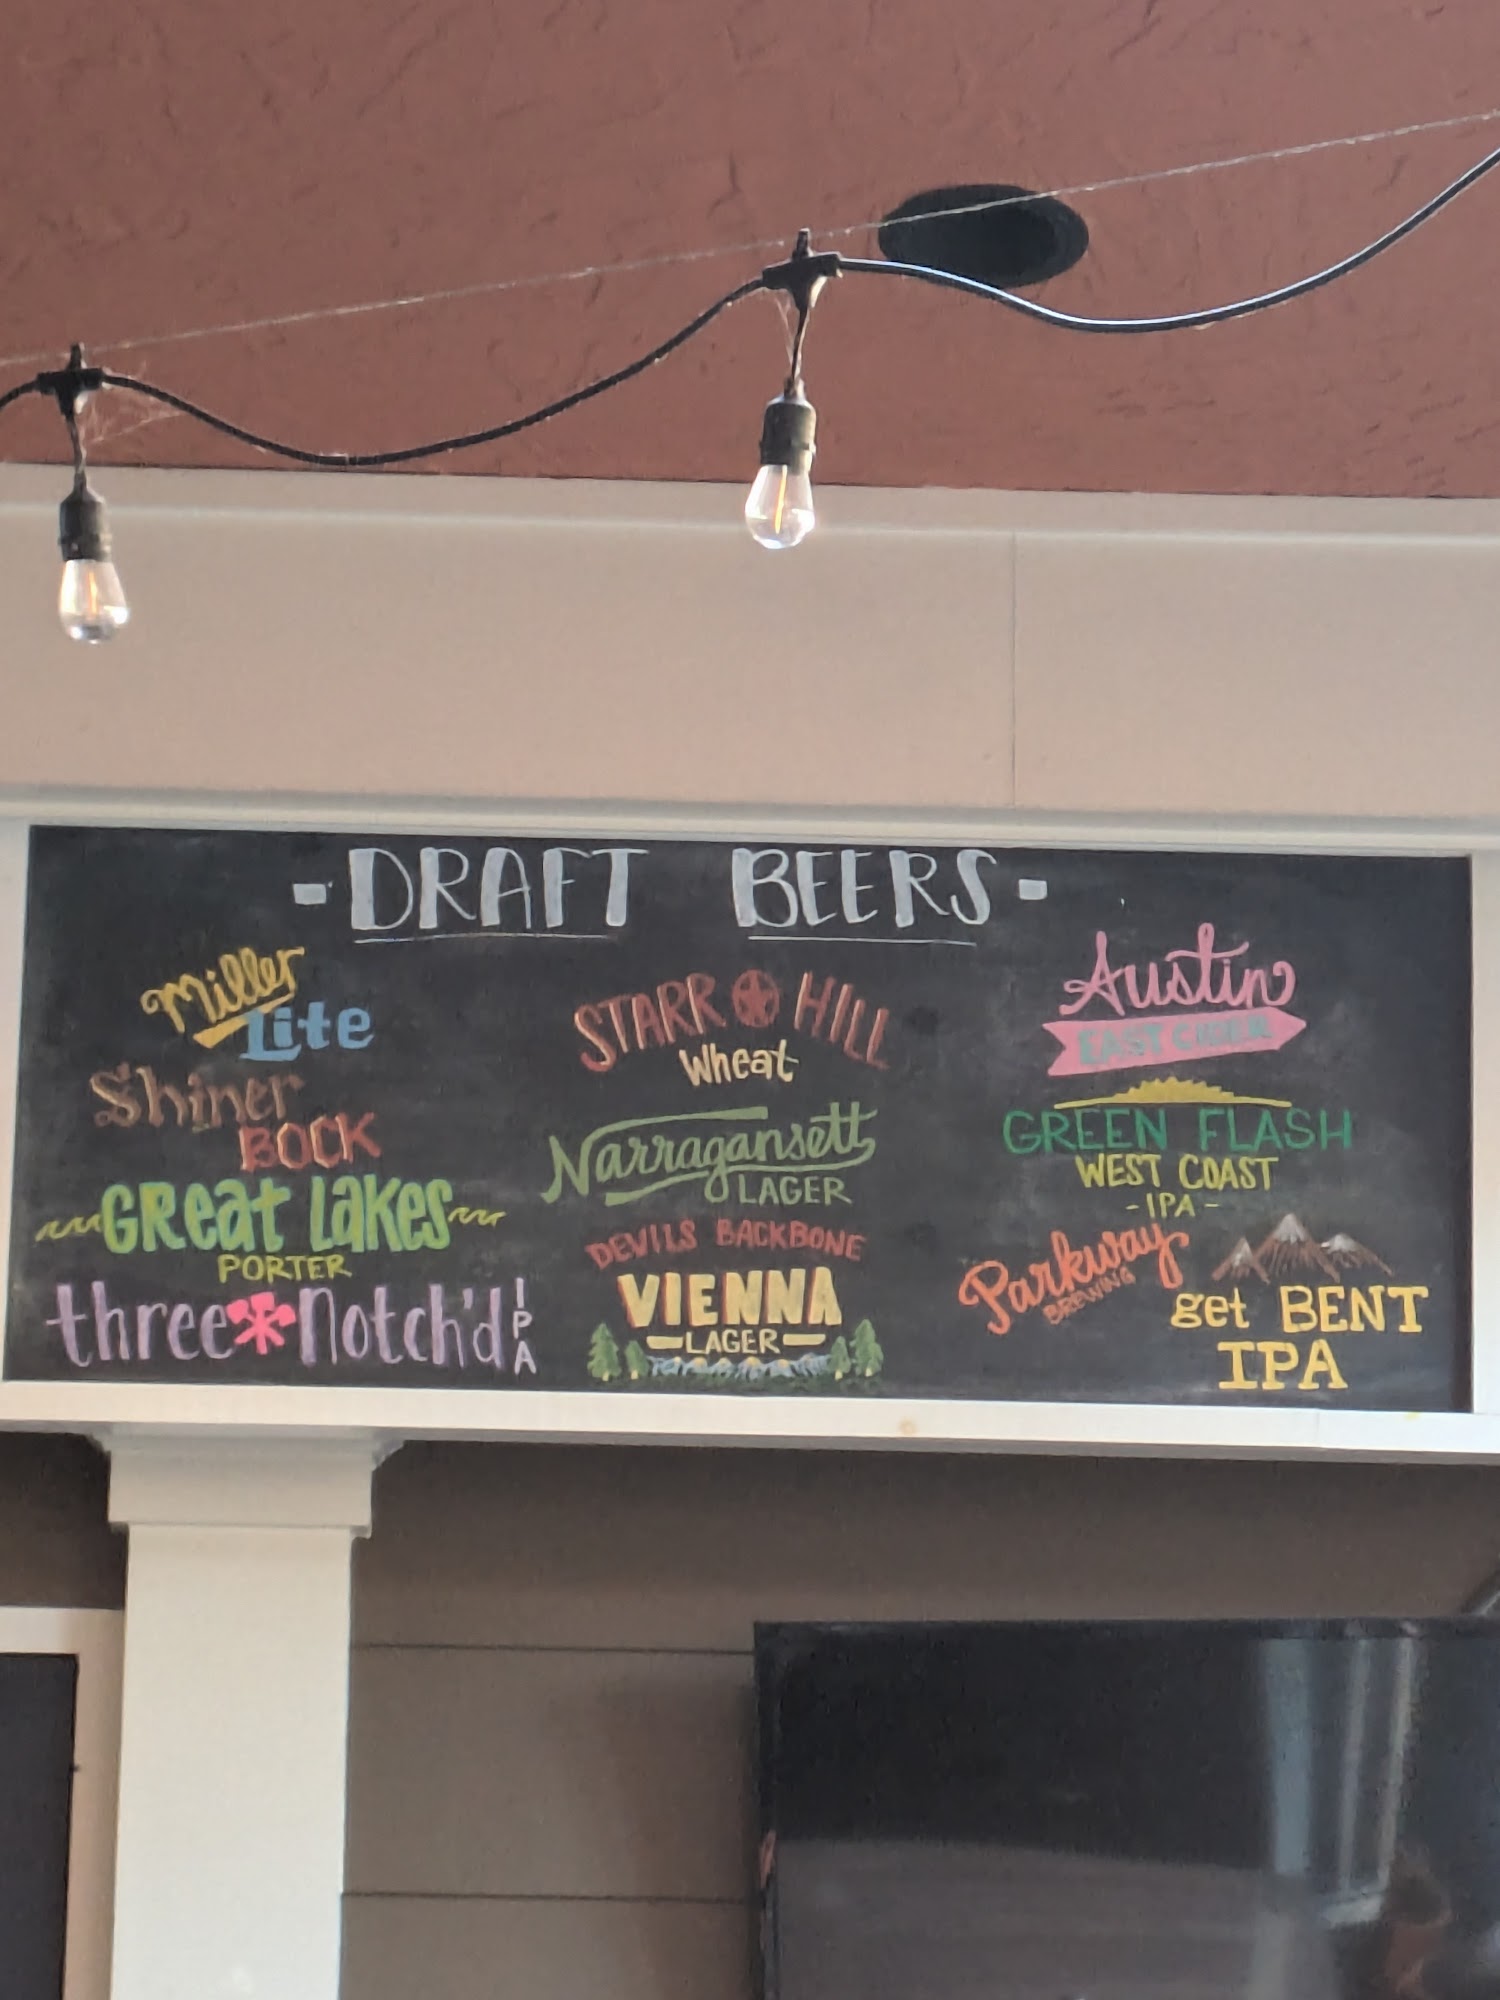 - DRAFT BEERS -
Miller
Lite
Shiner
BOCK
GREat LaKES
PORTER
three*Notch'd IPA
STARR HILL
Wheat
Narragansett
LAGER
DEVILS BACKBONE
VIENNA
-LAGER-
Austin
EAST CIDER
GREEN FLASH
WEST COAST
-IPA-
Parkway
BREWING
get BENT
IPA